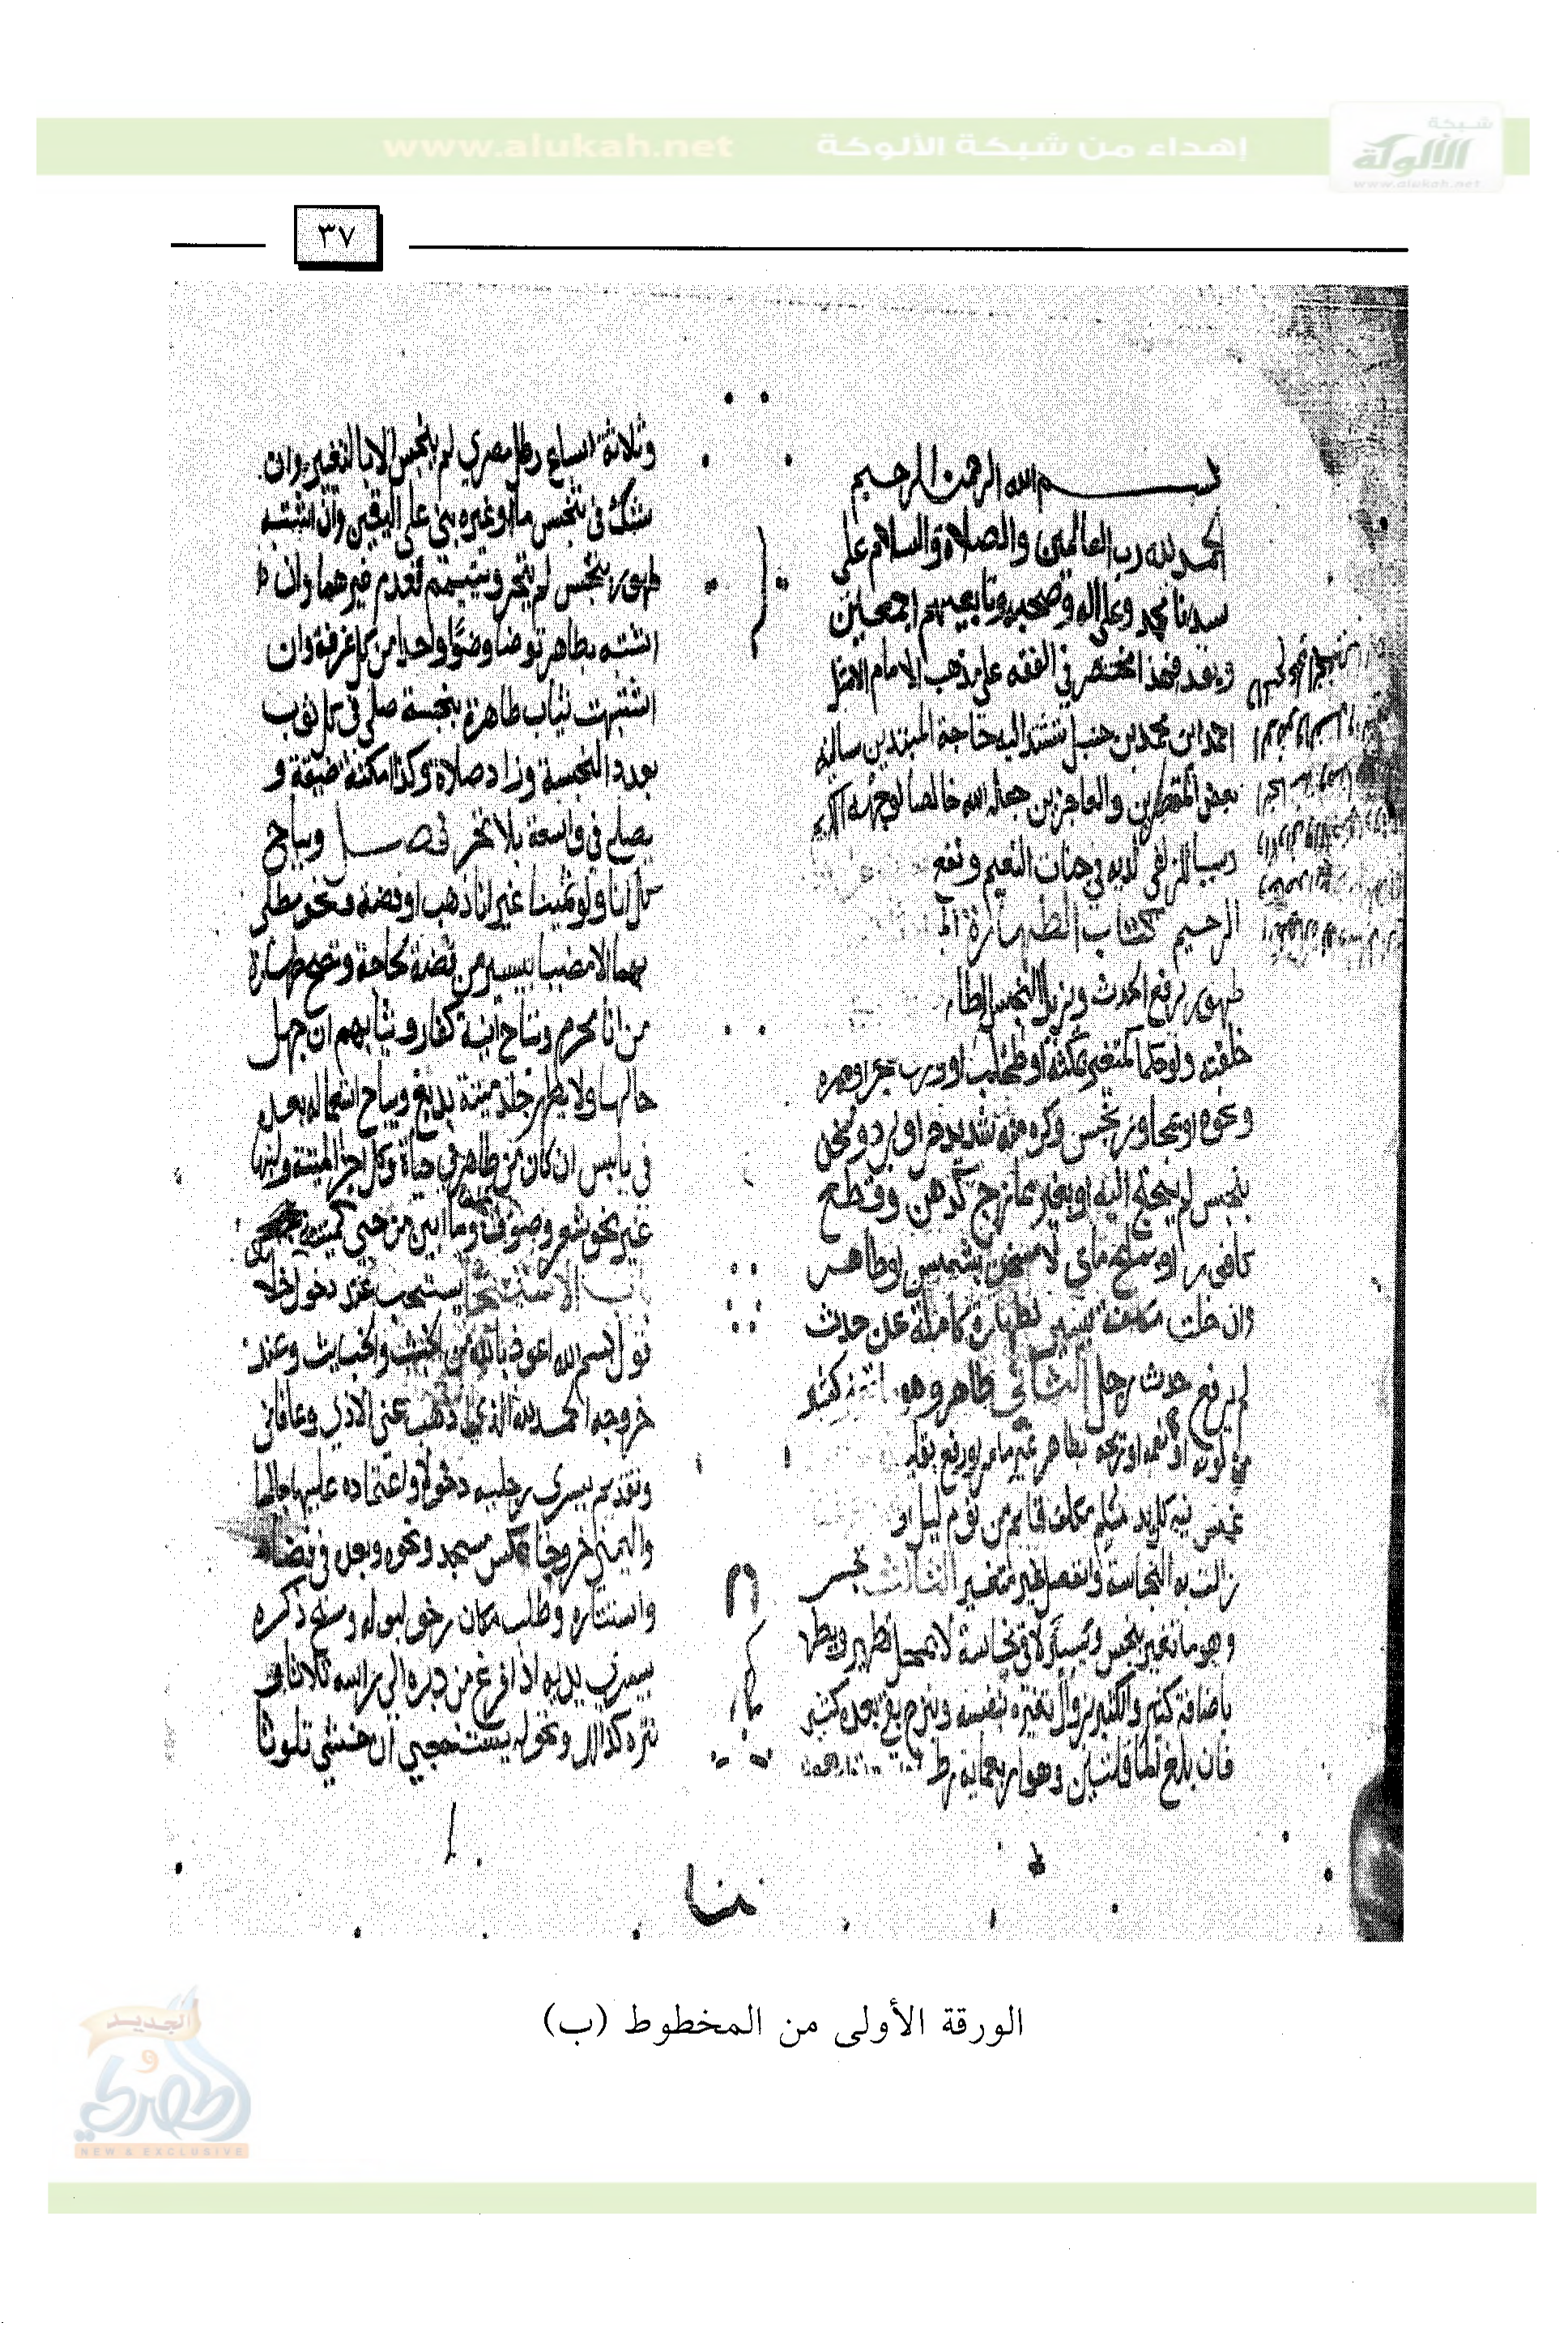 شبكة
الألوكة
www.alukah.net
إهداء من شبكة الألوكة www.alukah.net
٣٧
بسم الله الرحمن الرحيم
الحمد لله رب العالمين والصلاة والسلام على
سيدنا محمد وعلى اله وصحبه وتابعيهم اجمعين
وبعد فهذا مختصر في الفقه على مذهب الامام الامثل
احمد ابن محمد بن حنبل تشتد اليه حاجة المبتدين سالنيه
بعض المقصرين والعاجزين جعله الله خالصا لوجهه الكريم
وسببا للزلفى لديه في جنات النعيم ونفع
الرحيم كتاب الطهارة
طهور يرفع الحدث ويزيل النجس الطار
خلقته ولو حكما كمتغير بمكثه او طحلب او ورق شجر او ممره
ونحوه او بمجاورة نجس وكره منه شديد حر او برد ومسخن
بنجس لم يحتج اليه او بغير ممازج كدهن وقطع
كافور او ملح مائي لا مسخن بشمس او طاهر
وان خلت مكلفة بيسير لطهارة كاملة عن حدث
لم يرفع حدث رجل الثاني طاهر وهو كثير
لونه او طعمه او ريحه بطاهر غير مامر او رفع بقليله
غمس فيه كل يد مسلم مكلف قايم من نوم ليل او
زالت به النجاسة وانفصل غير متغير الثالث نجس
وهو ما تغير بنجس ويسير لاقى نجاسة لا بمحل تطهير ويطهر
باضافة كثير والكثير بزوال تغيره بنفسه ونزح يبقى بعده كثير
فان بلغ الما قلتين وهو اربعماية رطل
وثلاثة اسباع رطل مصري لم ينجس الا بالتغير وان
شك في تنجس ما او غيره بنى على اليقين وان اشتبه
طهور بنجس لم يتحر ويتيمم لعدم غيرهما وان
اشتبه بطاهر توضا وضوا واحدا من كل غرفة وان
اشتبهت ثياب طاهرة بنجسة صلى في كل ثوب
بعدد النجسة وزاد صلاة وكذا امكنة ضيقة و
يصلي في واسعة بلا تحر فصل ويباح
كل انا ولو ثمينا غير انا ذهب او فضة ونحو مطلي
بهما الا مضببا بيسير من فضة لحاجة وتصح طهارة
من انا محرم وتباح آنية كفار وثيابهم ان جهل
حالها ولا يطهر جلد ميتة بدبغ ويباح استعماله بعده
في يابس ان كان من طاهر في حياة وكل اجزا الميتة ولبنها
غير نحو شعر وصوف وما ابين من حي كميتته
باب الاستنجا يستحب عند دخول خلا
قول بسم الله اعوذ بالله من الخبث والخبايث وعند
خروجه الحمد لله الذي اذهب عني الاذى وعافاني
وتقديم يسرى رجليه دخولا واعتماده عليها جالسا
واليمنى خروجا عكس مسجد ونحوه وبعد في فضا
واستتاره وطلب مكان رخو لبوله ومسح ذكره
بيسرى يديه اذا فرغ من دبره الى راسه ثلاثا
نتره كذلك وتحوله يستنجي ان خشي تلوثا
الورقة الأولى من المخطوط (ب)
الجديد
و
الحصري
NEW & EXCLUSIVE